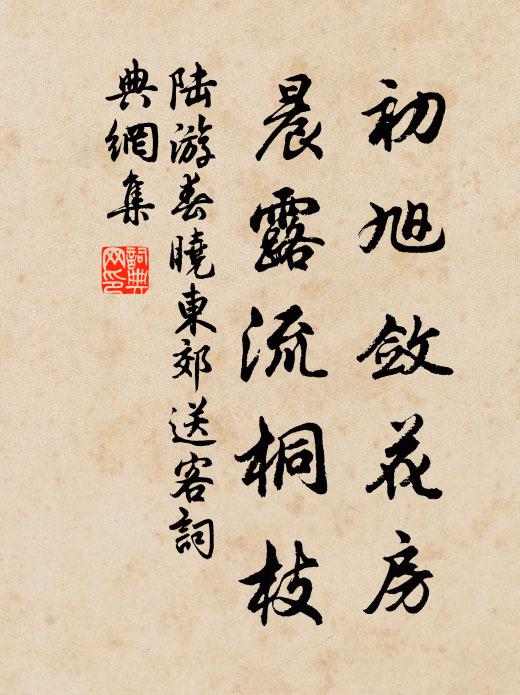 初旭斂花房
晨露流桐枝
陸游春曉東郊送客詞
典網集
詞典
网印